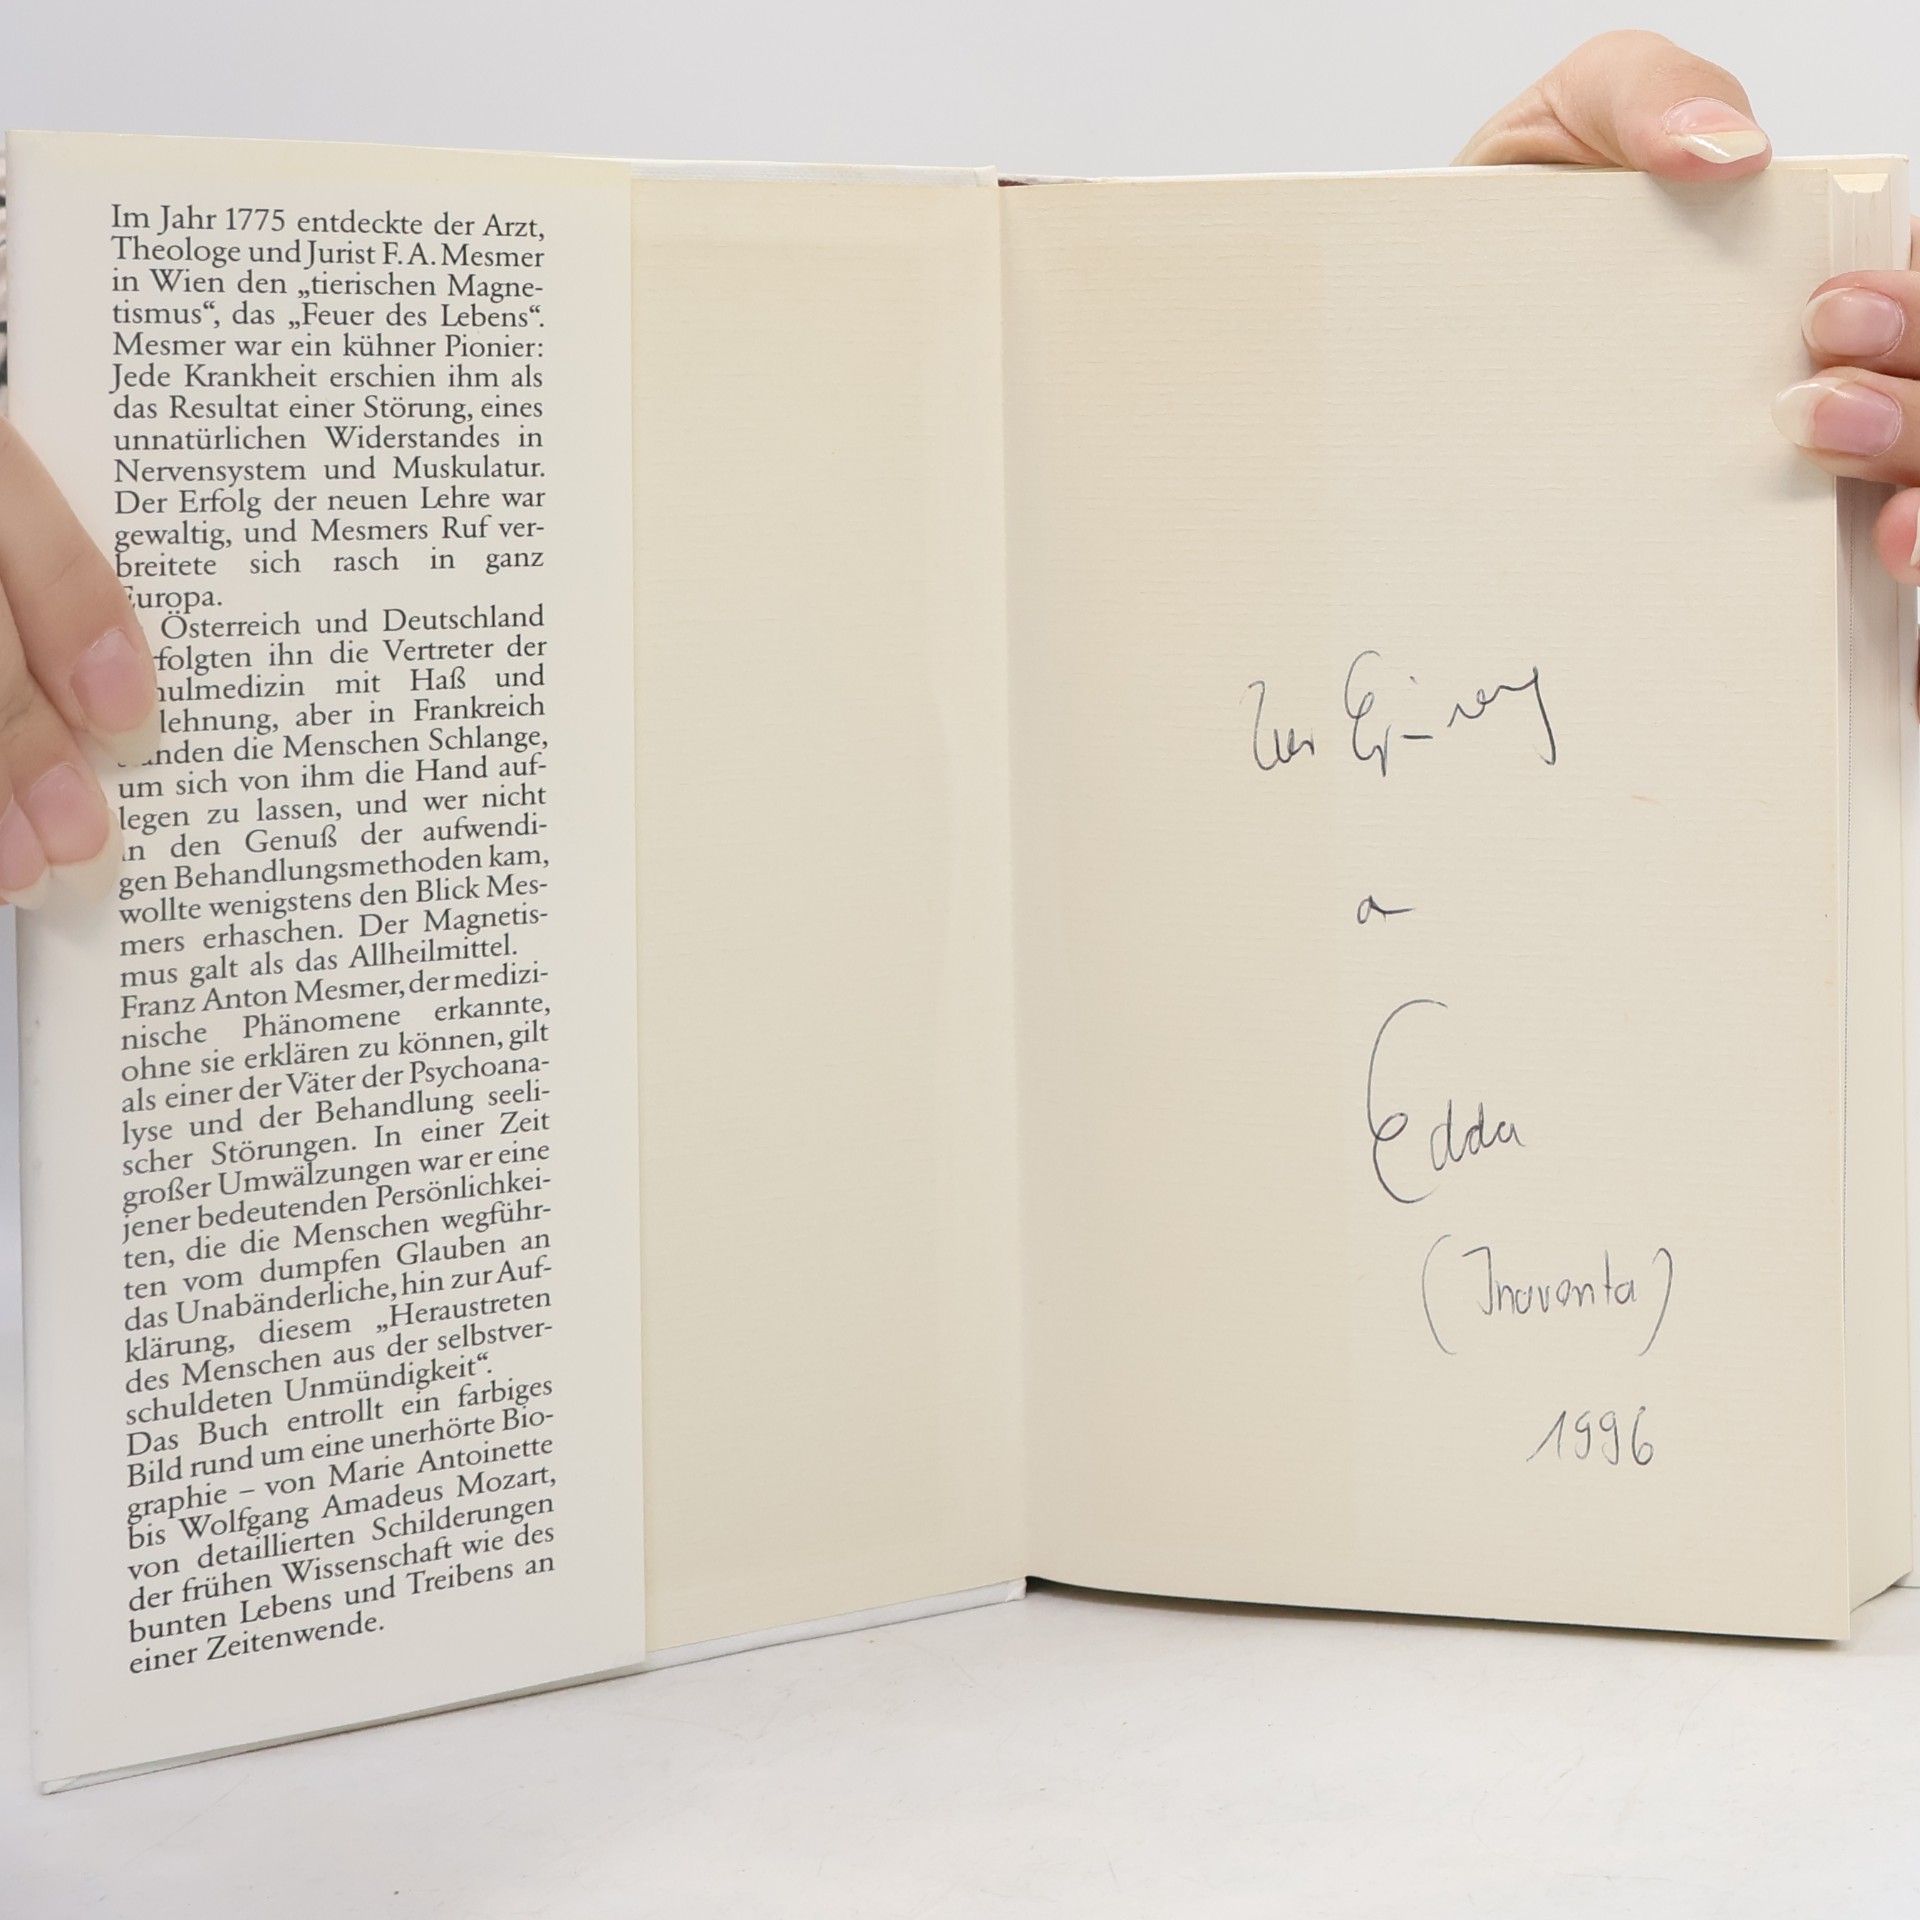 Im Jahr 1775 entdeckte der Arzt,
Theologe und Jurist F. A. Mesmer
in Wien den „tierischen Magne-
tismus“, das „Feuer des Lebens“.
Mesmer war ein kühner Pionier:
Jede Krankheit erschien ihm als
das Resultat einer Störung, eines
unnatürlichen Widerstandes in
Nervensystem und Muskulatur.
Der Erfolg der neuen Lehre war
gewaltig, und Mesmers Ruf ver-
breitete sich rasch in ganz
Europa.
Österreich und Deutschland
folgten ihn die Vertreter der
hulmedizin mit Haß und
lehnung, aber in Frankreich
anden die Menschen Schlange,
um sich von ihm die Hand auf-
legen zu lassen, und wer nicht
in den Genuß der aufwendi-
gen Behandlungsmethoden kam,
wollte wenigstens den Blick Mes-
mers erhaschen. Der Magnetis-
mus galt als das Allheilmittel.
Franz Anton Mesmer, der medizi-
nische Phänomene erkannte,
ohne sie erklären zu können, gilt
als einer der Väter der Psychoana-
lyse und der Behandlung seeli-
scher Störungen. In einer Zeit
großer Umwälzungen war er eine
jener bedeutenden Persönlichkei-
ten, die die Menschen wegführ-
ten vom dumpfen Glauben an
das Unabänderliche, hin zur Auf-
klärung, diesem „Heraustreten
des Menschen aus der selbstver-
schuldeten Unmündigkeit“.
Das Buch entrollt ein farbiges
Bild rund um eine unerhörte Bio-
graphie – von Marie Antoinette
bis Wolfgang Amadeus Mozart,
von detaillierten Schilderungen
der frühen Wissenschaft wie des
bunten Lebens und Treibens an
einer Zeitenwende.
Zur Erinnerung
an
Edda
1996